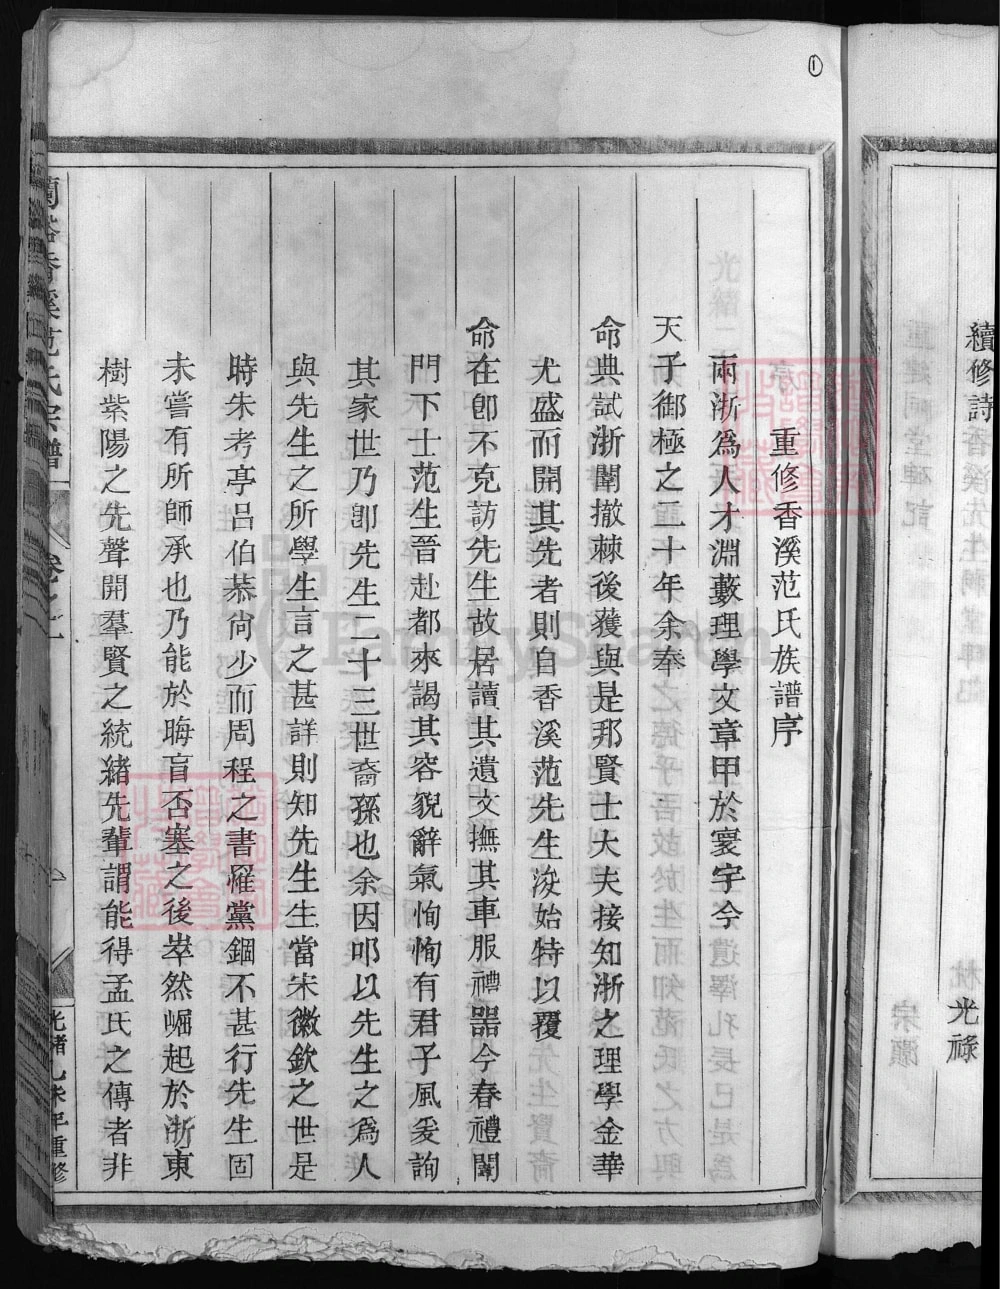 續修詩
光祿
①
重修香溪范氏族譜序
兩浙爲人才淵藪理學文章甲於寰宇今
天子御極之二十年余奉
命典試浙闈撤棘後獲與是邦賢士大夫接知浙之理學金華
尤盛而開其先者則自香溪范先生浚始特以覆
命在卽不克訪先生故居讀其遺文撫其車服禮器今春禮闈
門下士范生晉赴都來謁其容貌辭氣恂恂有君子風爰詢
其家世乃卽先生二十三世裔孫也余因叩以先生之爲人
與先生之所學生言之甚詳則知先生生當宋徽欽之世是
時朱考亭呂伯恭尙少而周程之書罹黨錮不甚行先生固
未嘗有所師承也乃能於晦盲否塞之後崒然崛起於浙東
樹紫陽之先聲開羣賢之統緒先輩謂能得孟氏之傳者非
蘭谿香溪范氏宗譜
卷之一
光緒乙未年重修
FamilySearch